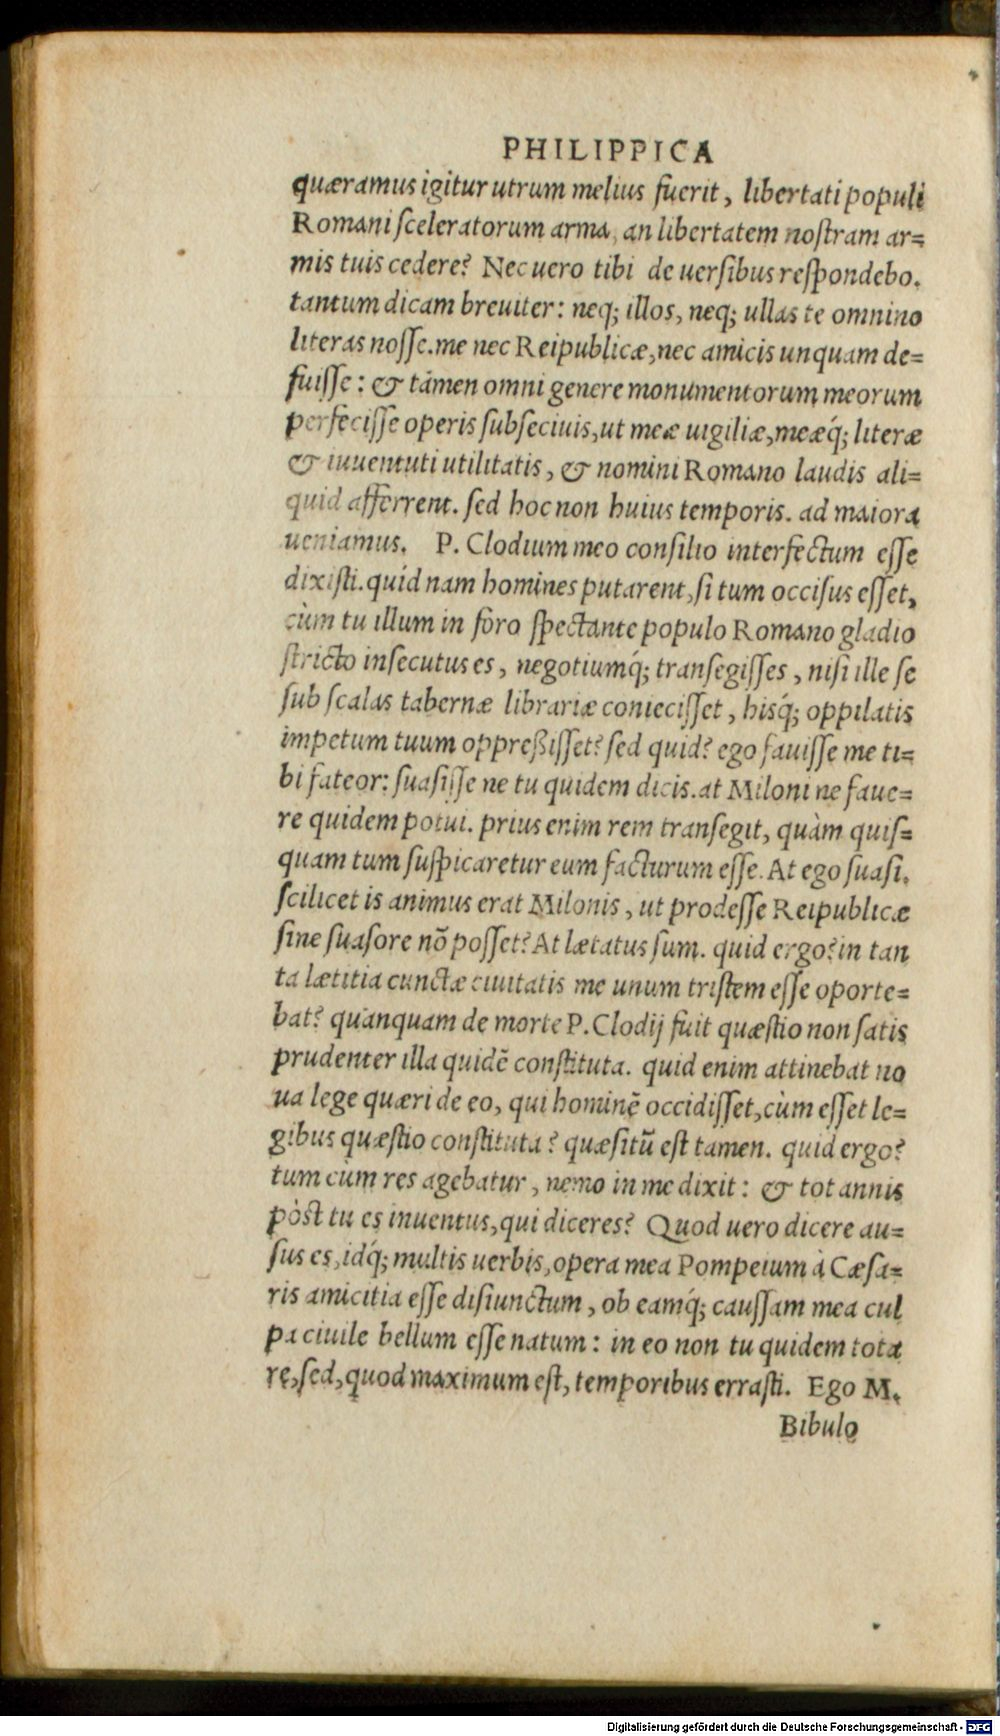 PHILIPPICA
quæramus igitur utrum melius fuerit, libertati populi
Romani sceleratorum arma, an libertatem nostram ar=
mis tuis cedere? Nec uero tibi de uersibus respondebo.
tantum dicam breuiter: neq; illos, neq; ullas te omnino
literas nosse. me nec Reipublicæ, nec amicis unquam de=
fuisse: & támen omni genere monumentorum meorum
perfecisse operis subseciuis, ut meæ uigiliæ, meæq́; literæ
& iuuentuti utilitatis, & nomini Romano laudis ali=
quid afferrent. sed hoc non huius temporis. ad maiora
ueniamus. P. Clodium meo consilio interfectum esse
dixisti. quid nam homines putarent, si tum occisus esset,
cùm tu illum in foro spectante populo Romano gladio
stricto insecutus es, negotiumq́; transegisses, nisi ille se
sub scalas tabernæ librariæ coniecisset, hisq́; oppilatis
impetum tuum oppreßisset? sed quid? ego fauisse me ti=
bi fateor: suasisse ne tu quidem dicis. at Miloni ne faue=
re quidem potui. prius enim rem transegit, quàm quis=
quam tum suspicaretur eum facturum esse. At ego suasi.
scilicet is animus erat Milonis, ut prodesse Reipublicæ
sine suasore nõ posset? At lætatus sum. quid ergo? in tan
ta lætitia cunctæ ciuitatis me unum tristem esse oporte=
bat? quanquam de morte P. Clodij fuit quæstio non satis
prudenter illa quidẽ constituta. quid enim attinebat no
ua lege quæri de eo, qui hominẽ occidisset, cùm esset le=
gibus quæstio constituta? quæsitũ est tamen. quid ergo?
tum cùm res agebatur, nemo in me dixit: & tot annis
pòst tu es inuentus, qui diceres? Quod uero dicere au=
sus es, idq́; multis uerbis, opera mea Pompeium à Cæsa=
ris amicitia esse disiunctum, ob eamq́; caussam mea cul
pa ciuile bellum esse natum: in eo non tu quidem tota
re, sed, quod maximum est, temporibus errasti. Ego M.
Bibulo
Digitalisierung gefördert durch die Deutsche Forschungsgemeinschaft - DFG